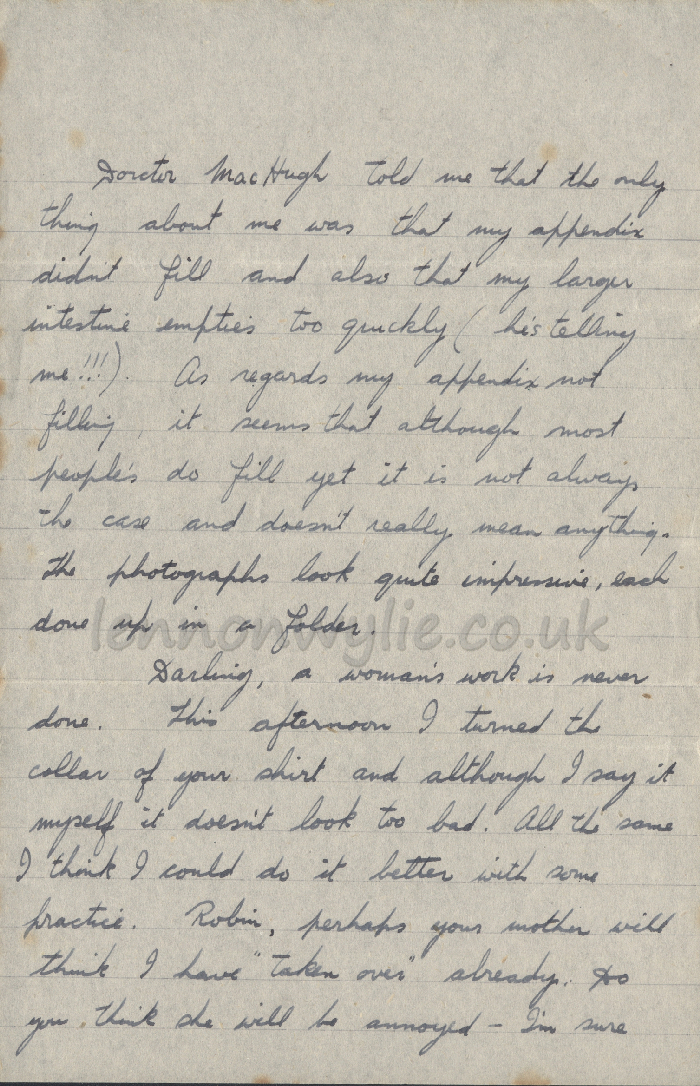 Doroter MacHugh told me that the only
thing about me was that my appendix
didn't fill and also that my larger
intestine empties too quickly (he's telling
me!!!). As regards my appendix not
filling, it seems that although most
people's do fill yet it is not always
the case and doesn't really mean anything.
The photographs look quite impressive, each
done up in a folder.
lennonwylie.co.uk
Darling, a woman's work is never
done. This afternoon I turned the
collar of your shirt and although I say it
myself it doesn't look too bad. All the same
I think I could do it better with some
practice. Robin, perhaps your mother will
think I have "taken over" already. Do
you think she will be annoyed - I'm sure